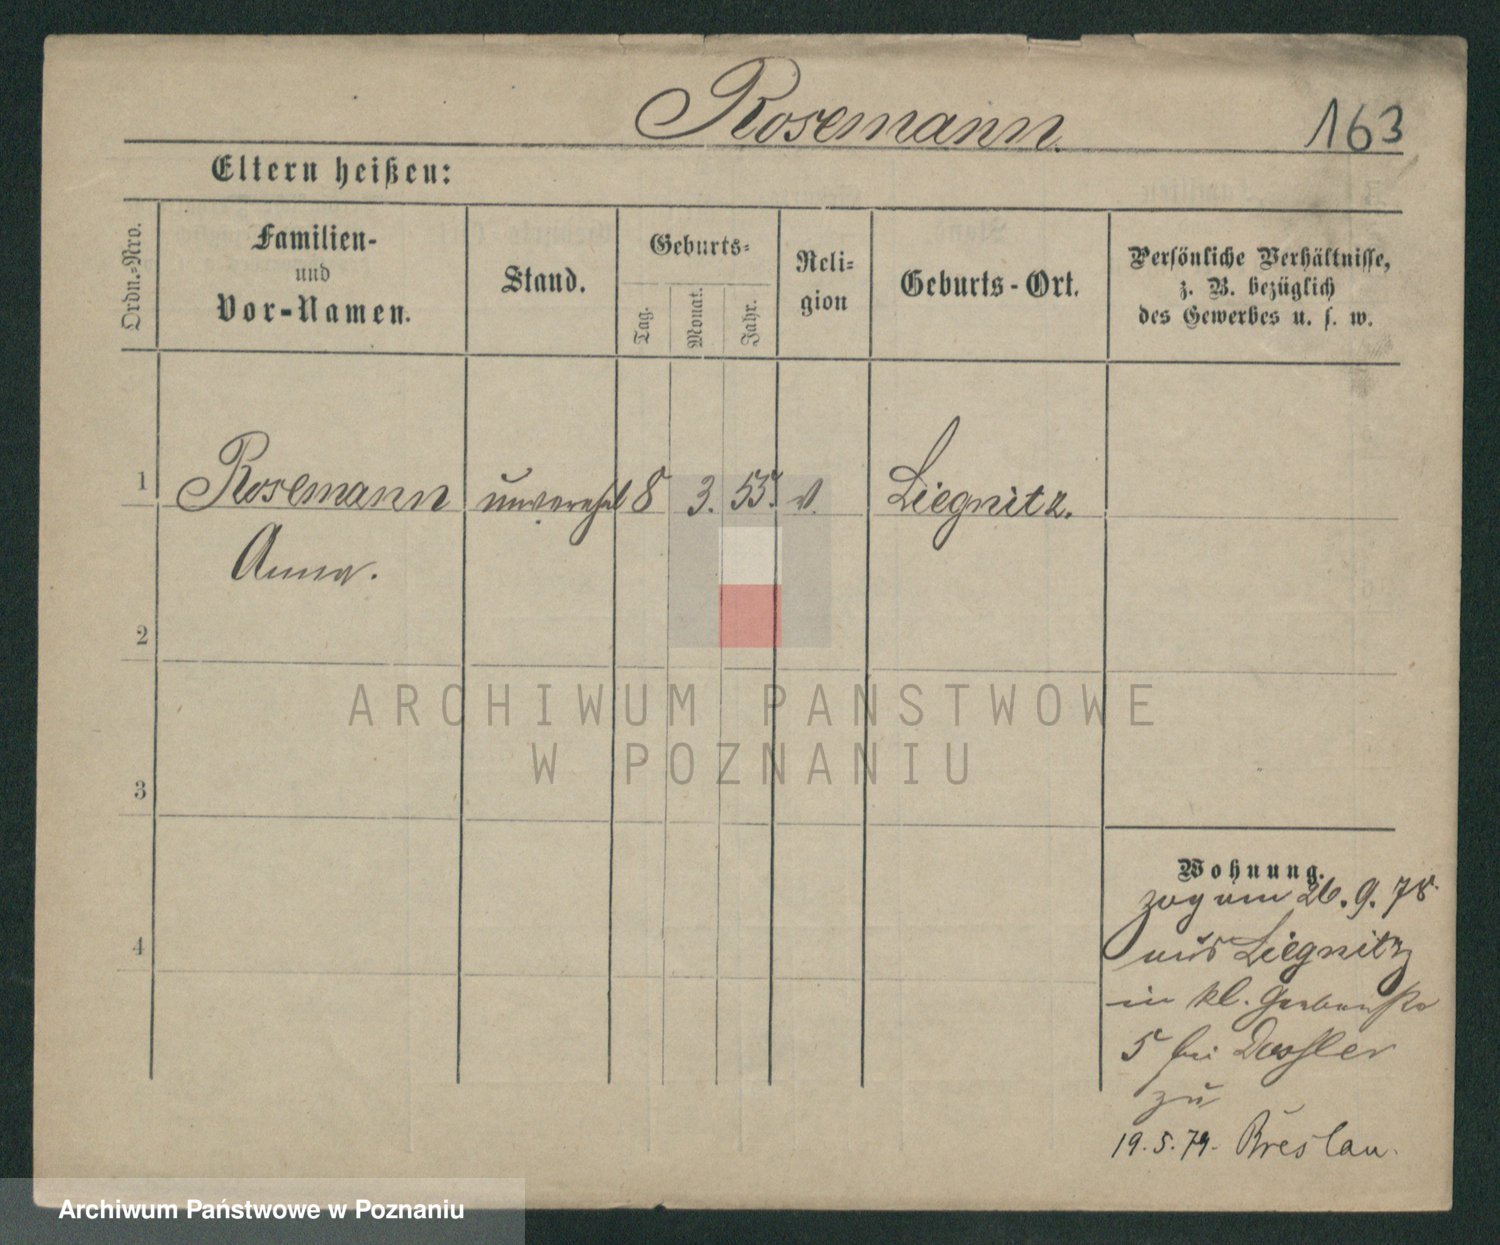 Rosemann.
163
Eltern heißen:
Ordn.-Nro.
Familien-
und
Vor-Namen.
Stand.
Geburts-
Tag.
Monat.
Jahr.
Reli-
gion
Geburts-Ort.
Persönliche Verhältnisse,
z. B. bezüglich
des Gewerbes u. s. w.
1
Rosemann
unverehel
8
3.
55.
Liegnitz.
Anna.
2
ARCHIWUM PAŃSTWOWE
W POZNANIU
3
Wohnung.
zog am 26.9.78
aus Liegnitz
in kl.
5 bei
zu
19.5.79. Breslau.
4
Archiwum Państwowe w Poznaniu